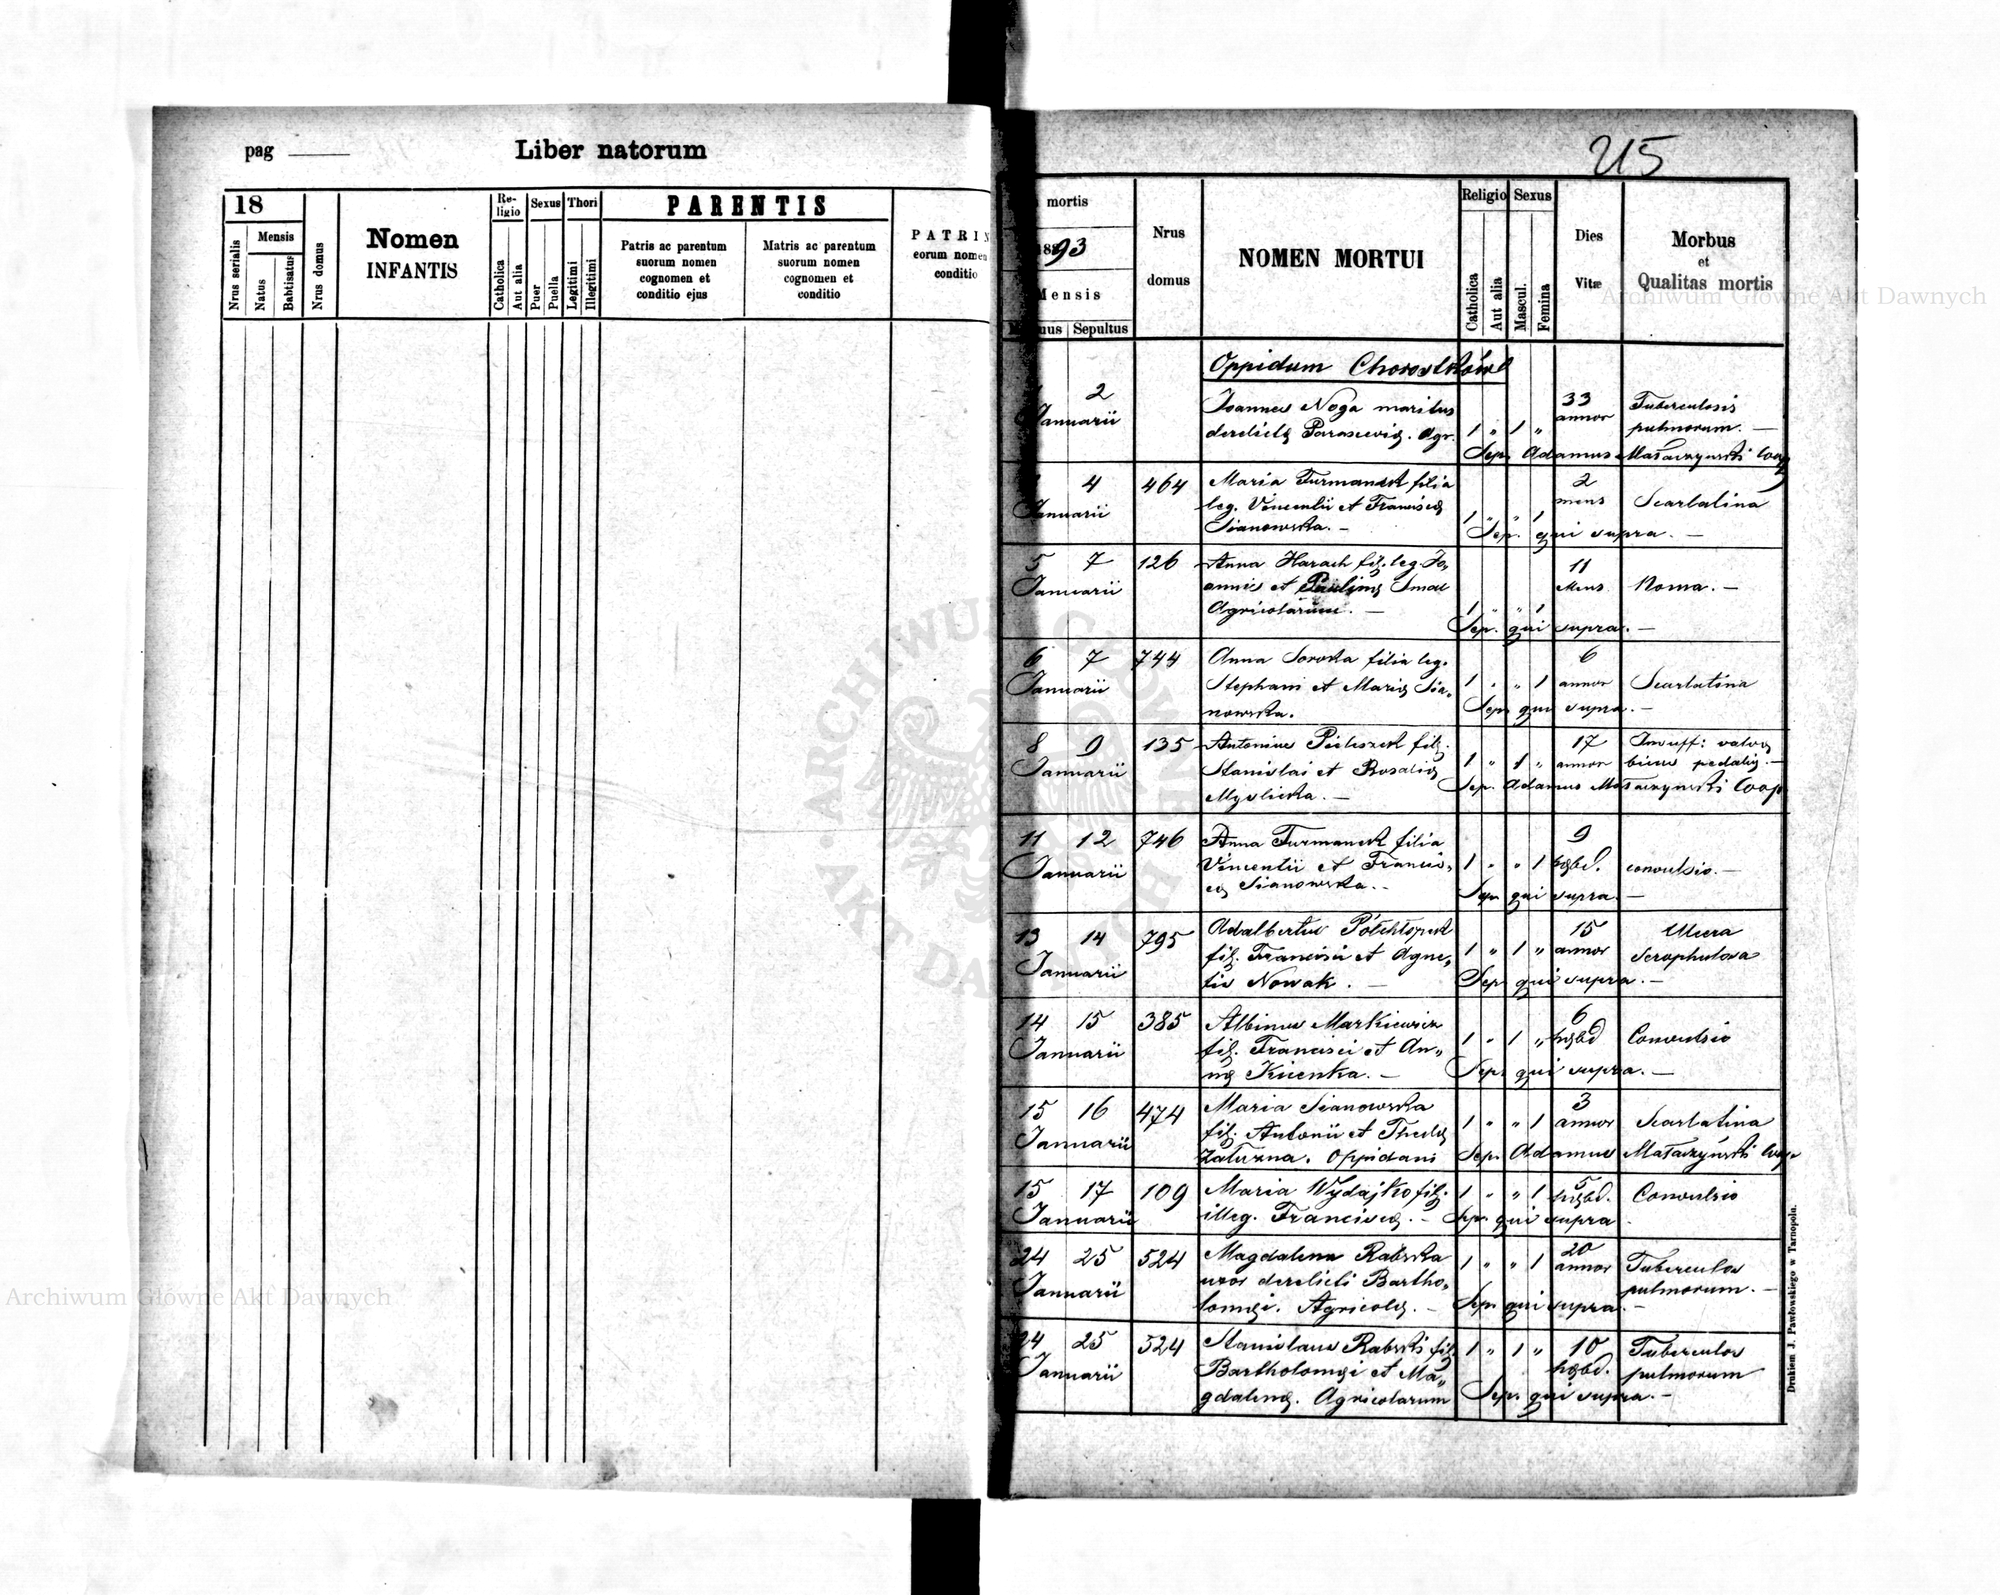 pag
Liber natorum
18
Mensis
Nrus serialis
Natus
Babtisatus
Nrus domus
Nomen
INFANTIS
Re-
ligio
Sexus
Thori
Catholica
Aut alia
Puer
Puella
Legitimi
Illegitimi
PARENTIS
Patris ac parentum
suorum nomen
cognomen et
conditio ejus
Matris ac parentum
suorum nomen
cognomen et
conditio
PATRIN
eorum nomen
conditio
215
mortis
1893
Mensis
Sepultus
Nrus
domus
NOMEN MORTUI
Religio
Sexus
Catholica
Aut alia
Mascul.
Femina
Dies
Vitæ
Morbus
et
Qualitas mortis
Oppidum Chorostków
2
Januarii
Joannes Noga maritus
derelictę Parascevię. Agr.
1 " 1 "
33
annor
Tuberculosis
pulmorum. —
Sep. Adamus Małaczyński Coop
4
Januarii
464
Maria Furmanek filia
leg. Vincentii et Franciscę
Sianowska. —
1 " " 1
2
mens
Scarlatina
Sep. qui supra. —
5 7
Januarii
126
Anna Harach fil. leg. Jo,
annis et Paulinę Smal
Agricolarum. —
1 " " 1
11
Mens
Noma. —
Sep. qui supra. —
6 7
Januarii
744
Anna Soroka filia leg.
Stephani et Marię Sia,
nowska.
1 " " 1
6
annor
Scarlatina
Sep. qui supra. —
8 9
Januarii
135
Antonius Pieluszek fil.
Stanislai et Rosalię
Myslicka. —
1 " 1 "
17
annor
Insuff: valvę
Sep. Adamus Małaczyński Coop
11 12
Januarii
746
Anna Furmanek filia
Vincentii et Francis,
cę Sianowska. —
1 " " 1
9
hębd.
convulsio. —
Sep. qui supra. —
13 14
Januarii
795
Adalbertus Półchłopek
fil. Francisci et Agne,
tis Nowak. —
1 " 1 "
15
annor
Ulcera
scrophulosa
Sep. qui supra. —
14 15
Januarii
385
Albinus Markiewicz
fil. Francisci et An,,
nę Kucenka. —
1 " 1 "
6
hębd
Convulsio
Sep. qui supra. —
15 16
Januarii
474
Maria Sianowska
fil. Antonii et Theclę
Załuzna. Oppidani
1 " " 1
3
annor
Scarlatina
Sep. Adamus Małaczyński Coop
15 17
Januarii
109
Maria Wydajko fil.
illeg. Franciscę. —
1 " " 1
5
hębd.
Convulsio
Sep. qui supra
24 25
Januarii
524
Magdalena Rabska
uxor derelicti Bartho,
lomęi. Agricolę. —
1 " " 1
20
annor
Tuberculos
pulmorum. —
Sep. qui supra. —
24 25
Januarii
524
Stanislaus Rabski fil.
Bartholomęi et Ma,,
gdalenę. Agricolarum
1 " 1 "
10
hębd.
Tuberculos
pulmorum
Sep. qui supra. —
Drukiem J. Pawłowskiego w Tarnopolu.
Archiwum Główne Akt Dawnych
Archiwum Główne Akt Dawnych
ARCHIWUM GŁÓWNE
AKT DAWNYCH